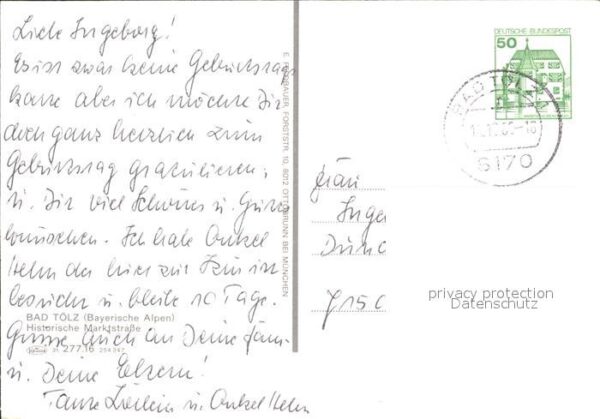 Liebe Ingeborg!
Es ist zwar keine Geburtstags
karte aber ich möchte Dir
doch ganz herzlich zum
Geburtstag gratulieren,
u. Dir viel Schönes u. Gutes
wünschen. Ich habe Onkel
der hier zur Kur ist
besucht u. bleibe 10 Tage.
BAD TÖLZ (Bayerische Alpen)
Historische Marktstraße
Grüsse auch an Deine Fam.
277.16
u. Deine Eltern!
Tante u. Onkel
FORSTSTR. 10, 8012 OTTOBRUNN BEI MÜNCHEN
DEUTSCHE BUNDESPOST
50
BAD TÖLZ
8170
Frau
Inge
privacy protection
Datenschutz